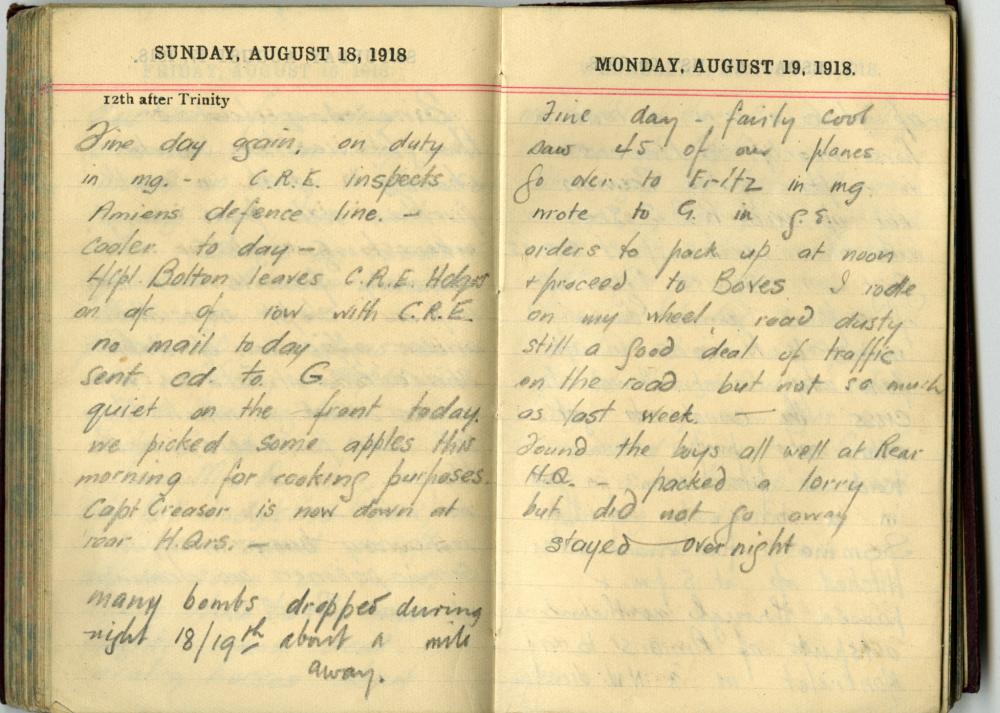 SUNDAY, AUGUST 18, 1918
12th after Trinity
Fine day again. on duty
in mg. - C.R.E. inspects
Amiens defence line. -
cooler to day -
H/pl. Bolton leaves C.R.E. Hdqrs
on a/c of row with C.R.E.
no mail to day
sent cd. to. G.
quiet on the front today.
we picked some apples this
morning for cooking purposes.
Capt Creasor is now down at
rear H.Qrs. -
many bombs dropped during
night 18/19th about a mile
away.
MONDAY, AUGUST 19, 1918.
Fine day - fairly cool
saw 45 of our planes
go over to Fritz in mg.
wrote to G. in g.e.
orders to pack up at noon
+ proceed to Boves I rode
on my wheel. road dusty
still a good deal of traffic
on the road but not so much
as last week. -
Found the boys all well at Rear
H.Q. - packed a lorry
but did not go away
stayed over night